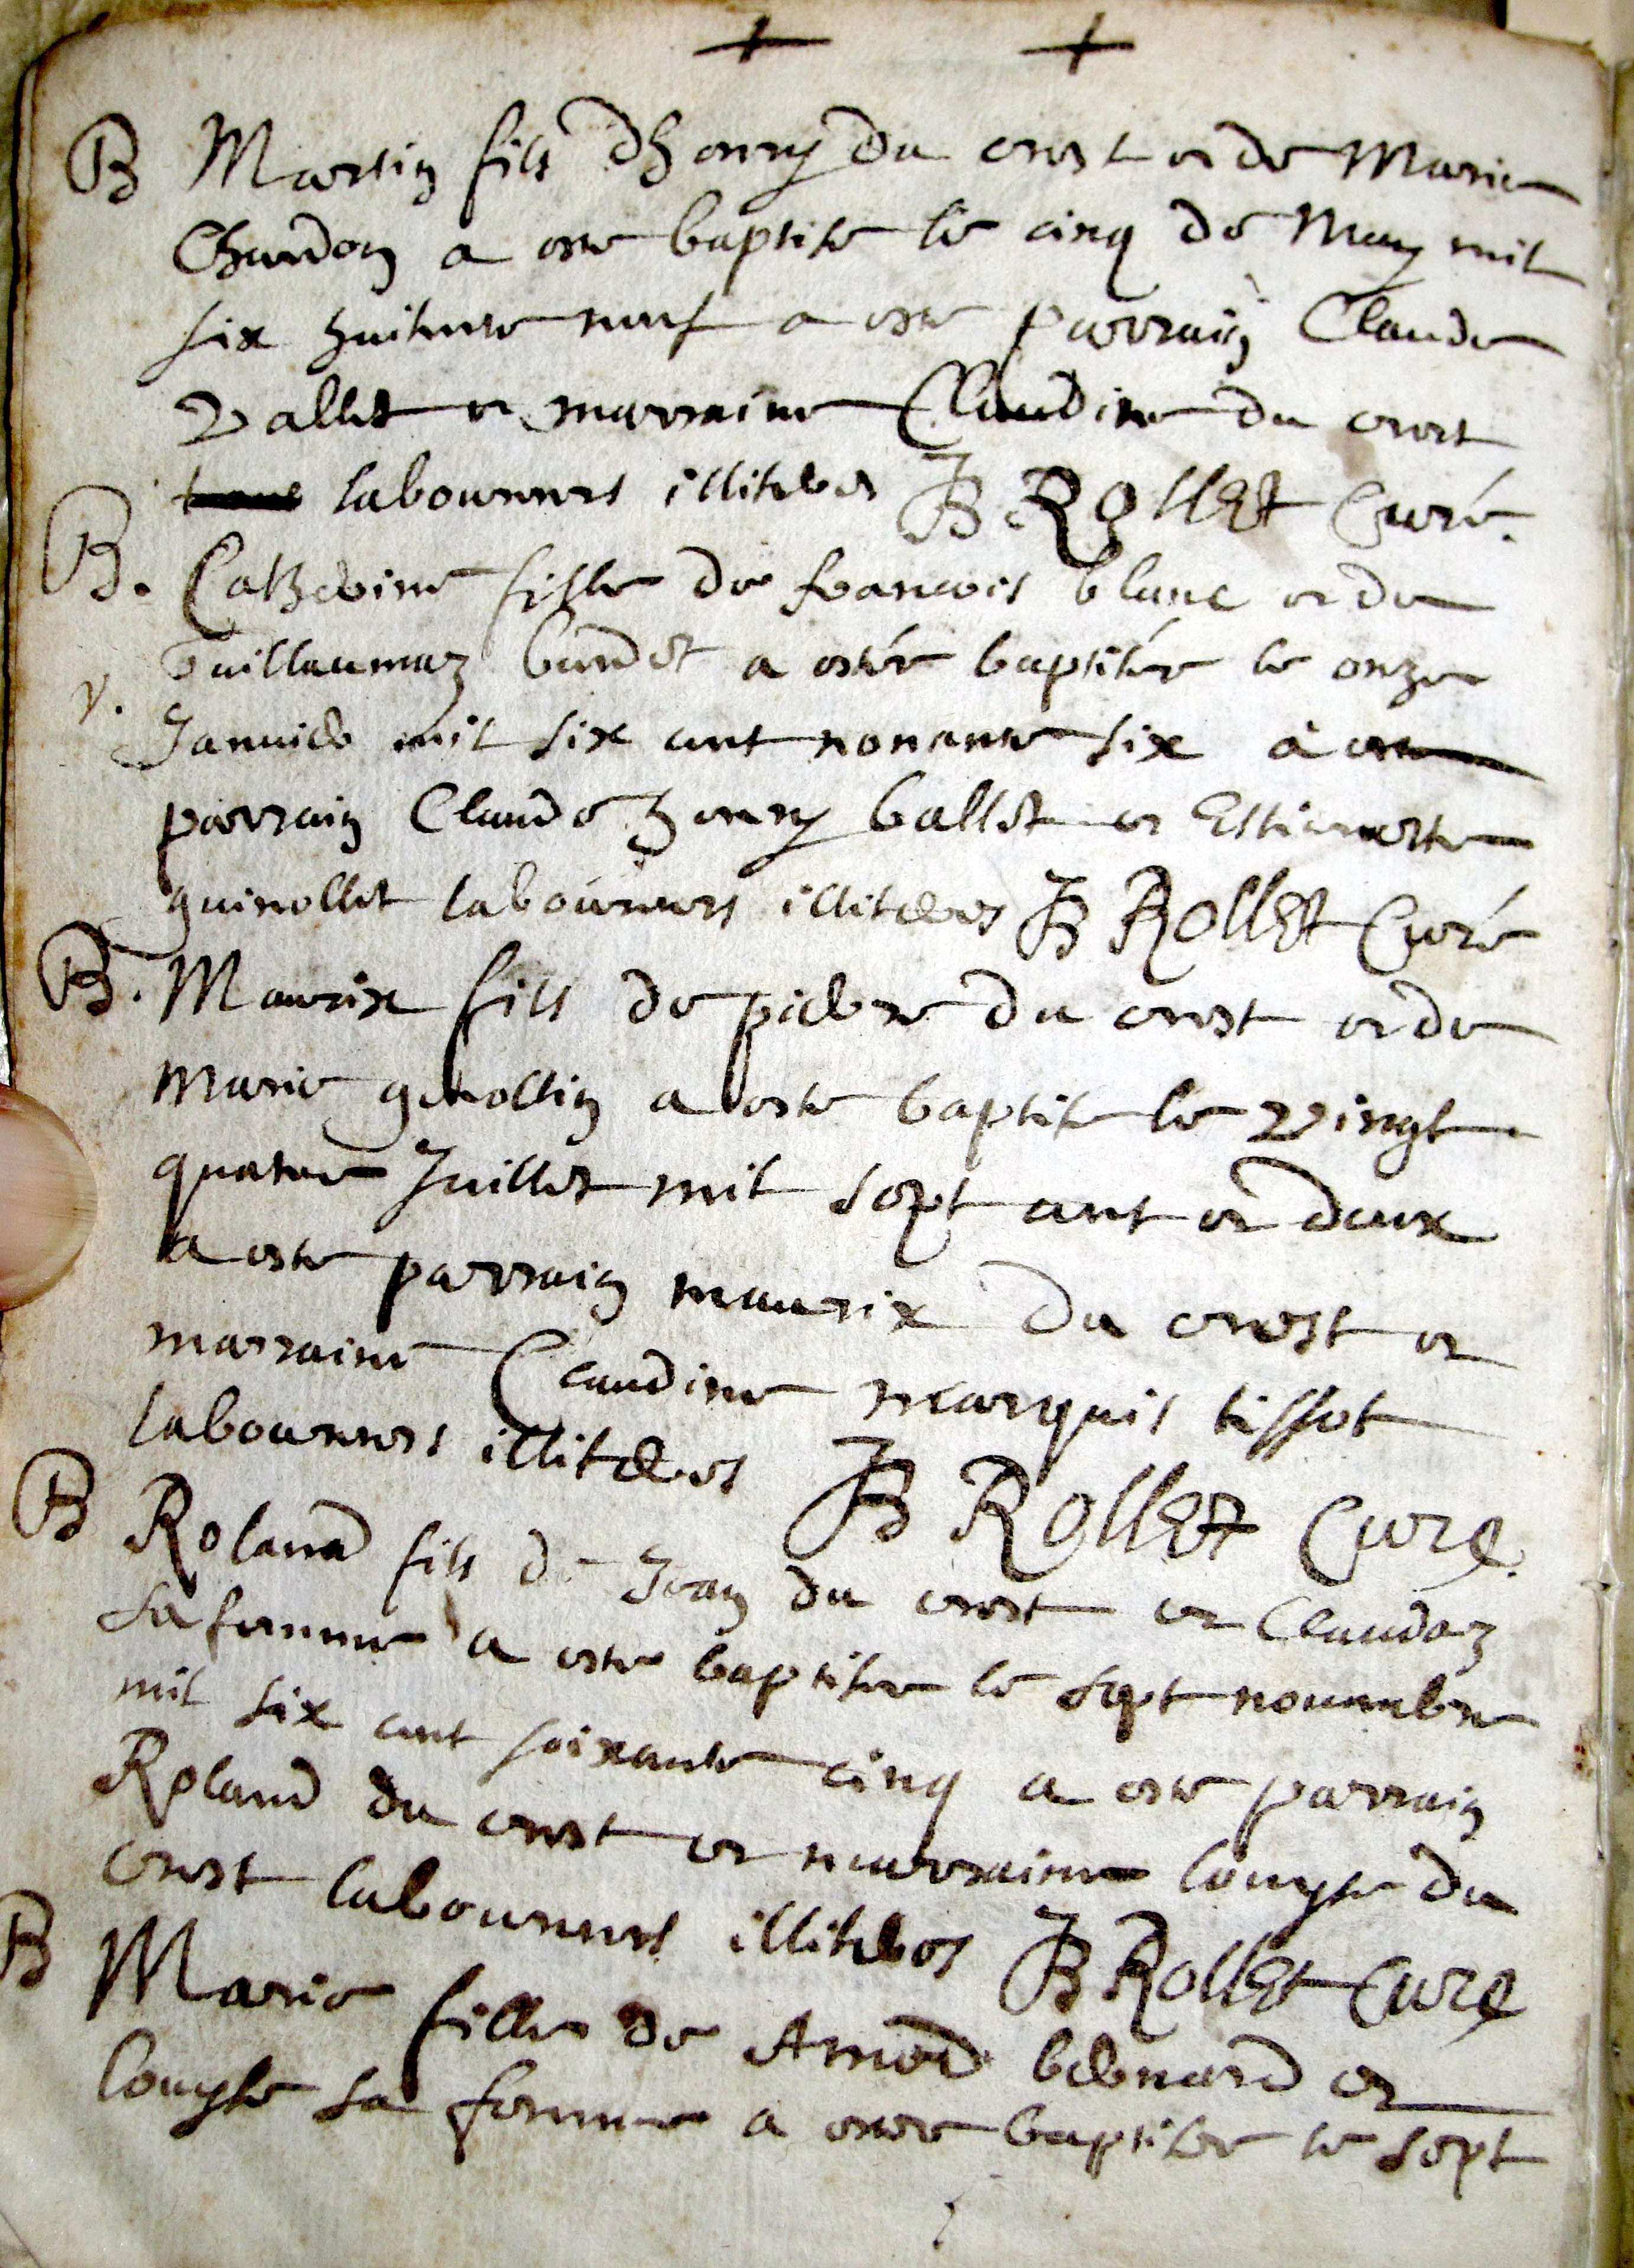 B Martin fils d'henry du crest et de Marie
Chardon a este baptise le cinq de May mil
six huitante neuf a este parrain Claude
Vallet et marraine Claudine du crest
laboureurs illiteres JB Rollet Curé.
B. Catherine fille de francois blanc et de
Guillaumaz burdet a estée baptisée le onze
v.
Januier mil six cent nonante six a este
parrain Claude henry ballet et Estiennette
guinollet laboureurs illiteres JB Rollet Curé
B. Maurix fils de pierre du crest et de
Marie genollin a este baptise le vingt
quatre Juillet mil sept cent et deux
a este parrain maurix du crest et
marraine Claudine marquis tissot
laboureurs illiteres JB Rollet Curé.
B Roland fils de Jean du crest et Claudaz
sa femme a este baptise le sept nouembre
mil six cent soixante cinq a este parrain
Roland du crest et marraine louyse du
crest laboureurs illiteres JB Rollet Curé
B Marie fille de Amed bernard et
louyse sa femme a estee baptisee le sept